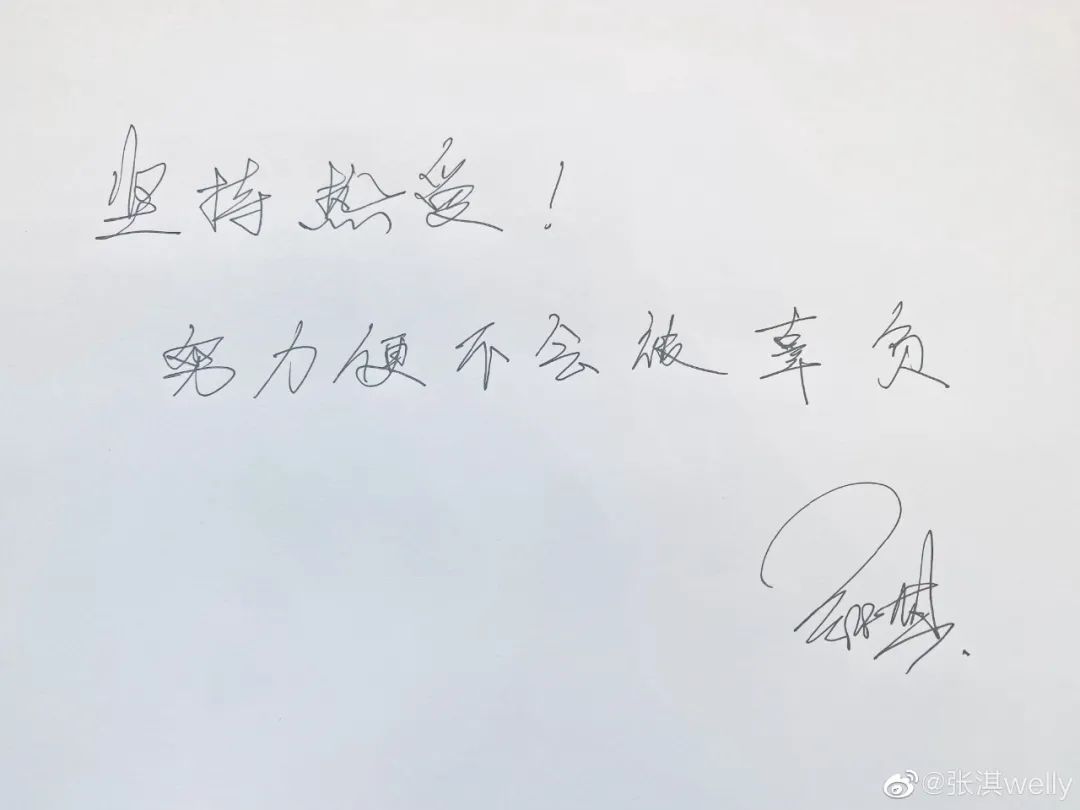 坚持热爱！
努力便不会被辜负
@张淇welly